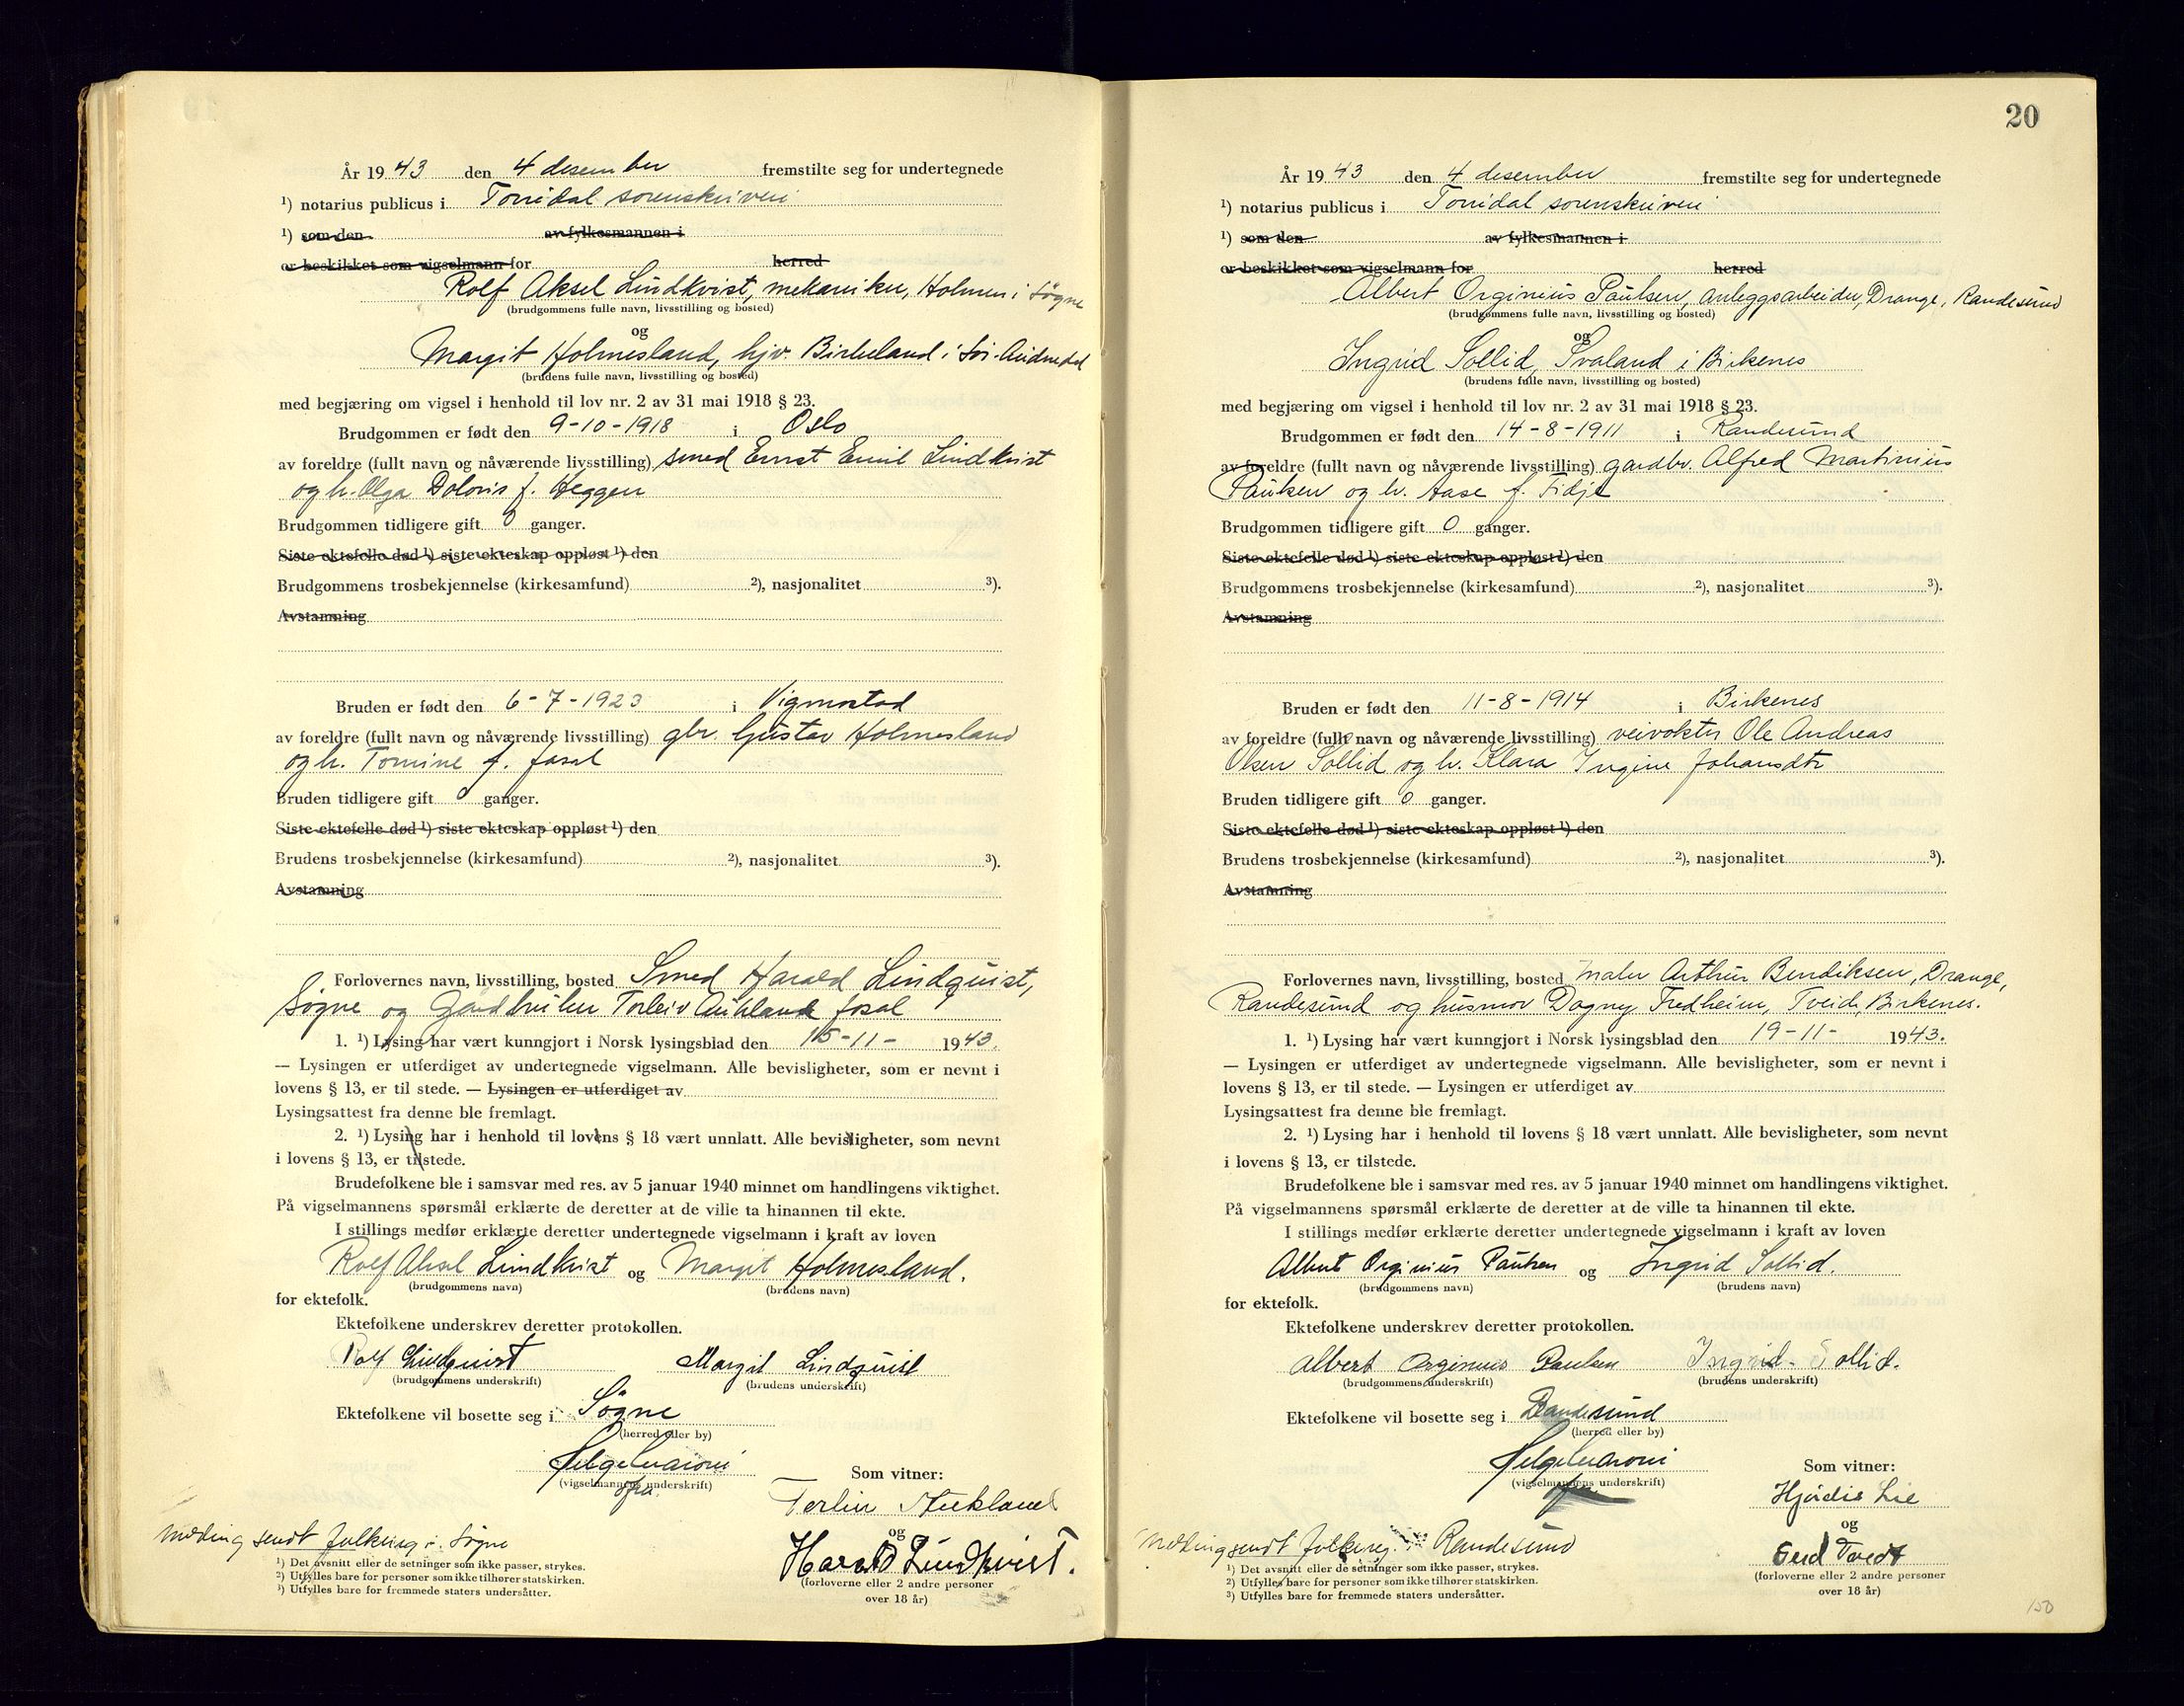 År 1943 den 4 desember fremstilte seg for undertegnede
¹) notarius publicus i Torridal sorenskriveri
¹) som den av fylkesmannen i
er beskikket som vigselmann for herred
Rolf Aksel Lindkvist, mekaniker, Holmen i Søgne
(brudgommens fulle navn, livsstilling og bosted)
og
Margit Holmesland, hjv. Birkeland i Sør-Audnedal
(brudens fulle navn, livsstilling og bosted)
med begjæring om vigsel i henhold til lov nr. 2 av 31 mai 1918 § 23.
Brudgommen er født den 9-10-1918 i Oslo
av foreldre (fullt navn og nåværende livsstilling) smed Ernst Emil Lindkvist
og h. Olga Doloris f. Heggen
Brudgommen tidligere gift 0 ganger.
Siste ektefelle død ¹) siste ekteskap oppløst ¹) den
Brudgommens trosbekjennelse (kirkesamfund) ²), nasjonalitet ³).
Avstamning
Bruden er født den 6-7-1923 i Vigmostad
av foreldre (fullt navn og nåværende livsstilling) gbr. Gustav Holmesland
og h. Tomine f.
Bruden tidligere gift 0 ganger.
Siste ektefelle død ¹) siste ekteskap oppløst ¹) den
Brudens trosbekjennelse (kirkesamfund) ²), nasjonalitet ³).
Avstamning
Forlovernes navn, livsstilling, bosted Smed Harald Lindquist,
Søgne og Gårdbruker Torleiv Aukland
1. ¹) Lysing har vært kunngjort i Norsk lysingsblad den 15-11- 1943.
— Lysingen er utferdiget av undertegnede vigselmann. Alle bevisligheter, som er nevnt i
lovens § 13, er til stede. — Lysingen er utferdiget av
Lysingsattest fra denne ble fremlagt.
2. ¹) Lysing har i henhold til lovens § 18 vært unnlatt. Alle bevisligheter, som nevnt
i lovens § 13, er tilstede.
Brudefolkene ble i samsvar med res. av 5 januar 1940 minnet om handlingens viktighet.
På vigselmannens spørsmål erklærte de deretter at de ville ta hinannen til ekte.
I stillings medfør erklærte deretter undertegnede vigselmann i kraft av loven
Rolf Aksel Lindkvist og Margit Holmesland.
(brudgommens navn) (brudens navn)
for ektefolk.
Ektefolkene underskrev deretter protokollen.
Rolf Lindquist Margit Lindquist
(brudgommens underskrift) (brudens underskrift)
Ektefolkene vil bosette seg i Søgne
(herred eller by)
(vigselmannens underskrift)
Som vitner:
Aukland
og
Harald Lindkvist.
(forloverne eller 2 andre personer
over 18 år)
Melding sendt folkereg. i Søgne
¹) Det avsnitt eller de setninger som ikke passer, strykes.
²) Utfylles bare for personer som ikke tilhører statskirken.
³) Utfylles bare for fremmede staters undersåtter.
20
År 1943 den 4 desember fremstilte seg for undertegnede
¹) notarius publicus i Torridal sorenskriveri
¹) som den av fylkesmannen i
er beskikket som vigselmann for herred
Albert Orginius Paulsen, anleggsarbeider, Drange, Randesund
(brudgommens fulle navn, livsstilling og bosted)
og
Ingrid Sollid, Svaland i Birkenes
(brudens fulle navn, livsstilling og bosted)
med begjæring om vigsel i henhold til lov nr. 2 av 31 mai 1918 § 23.
Brudgommen er født den 14-8-1911 i Randesund
av foreldre (fullt navn og nåværende livsstilling) gardbr. Alfred Martinius
Paulsen og h. Aase f. Tidje
Brudgommen tidligere gift 0 ganger.
Siste ektefelle død ¹) siste ekteskap oppløst ¹) den
Brudgommens trosbekjennelse (kirkesamfund) ²), nasjonalitet ³).
Avstamning
Bruden er født den 11-8-1914 i Birkenes
av foreldre (fullt navn og nåværende livsstilling) veivokter Ole Andreas
Olsen Sollid og h. Klara Ingine Johansdtr
Bruden tidligere gift 0 ganger.
Siste ektefelle død ¹) siste ekteskap oppløst ¹) den
Brudens trosbekjennelse (kirkesamfund) ²), nasjonalitet ³).
Avstamning
Forlovernes navn, livsstilling, bosted maler Arthur Bendiksen, Drange,
Randesund og husmor Dagny Fredheim, Tveide, Birkenes.
1. ¹) Lysing har vært kunngjort i Norsk lysingsblad den 19-11- 1943.
— Lysingen er utferdiget av undertegnede vigselmann. Alle bevisligheter, som er nevnt i
lovens § 13, er til stede. — Lysingen er utferdiget av
Lysingsattest fra denne ble fremlagt.
2. ¹) Lysing har i henhold til lovens § 18 vært unnlatt. Alle bevisligheter, som nevnt
i lovens § 13, er tilstede.
Brudefolkene ble i samsvar med res. av 5 januar 1940 minnet om handlingens viktighet.
På vigselmannens spørsmål erklærte de deretter at de ville ta hinannen til ekte.
I stillings medfør erklærte deretter undertegnede vigselmann i kraft av loven
Albert Orginius Paulsen og Ingrid Sollid.
(brudgommens navn) (brudens navn)
for ektefolk.
Ektefolkene underskrev deretter protokollen.
Albert Orginius Paulsen Ingrid Sollid.
(brudgommens underskrift) (brudens underskrift)
Ektefolkene vil bosette seg i Randesund
(herred eller by)
(vigselmannens underskrift)
Som vitner:
Hjørdis Lie
og
Gerd Tvedt
(forloverne eller 2 andre personer
over 18 år)
Melding sendt folkereg. i Randesund
¹) Det avsnitt eller de setninger som ikke passer, strykes.
²) Utfylles bare for personer som ikke tilhører statskirken.
³) Utfylles bare for fremmede staters undersåtter.
150